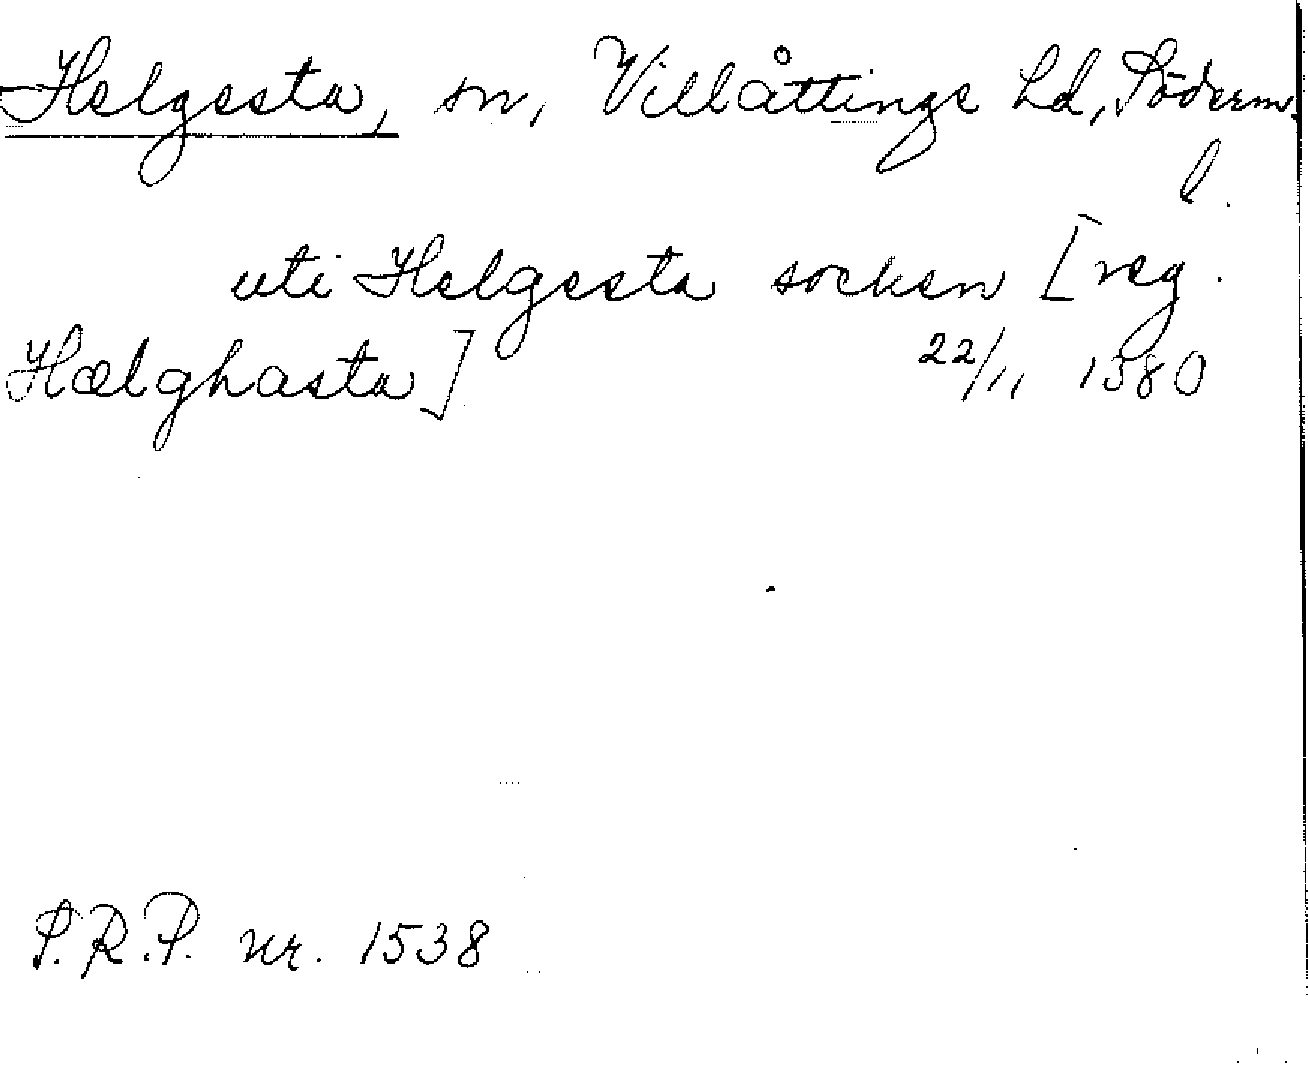 Helgesta, sn, Villåttinge hd, Söderm.
l.
uti Helgesta socken [reg.
Hælghasta] 22/11 1380
S.R.P. nr. 1538